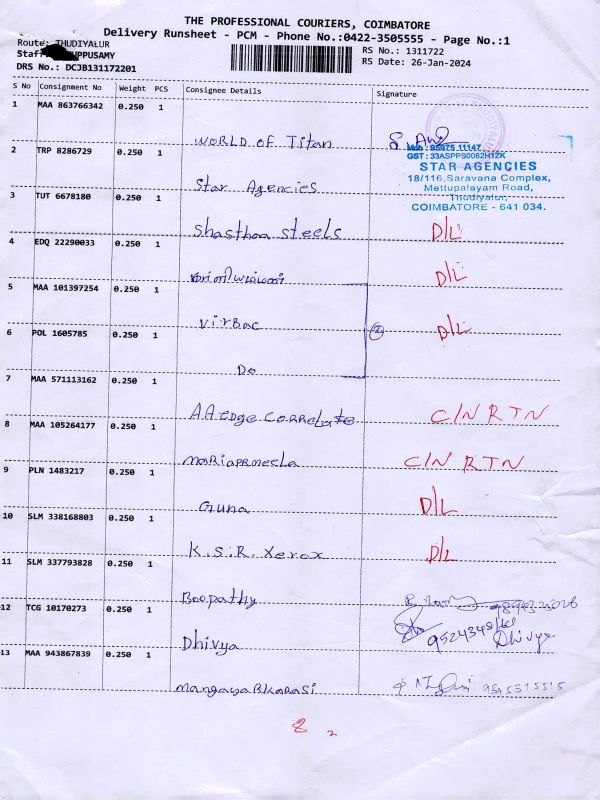 THE PROFESSIONAL COURIERS, COIMBATORE
Delivery Runsheet - PCM - Phone No.:0422-3505555 - Page No.:1
Route: THUDIYALUR
RS No.: 1311722
Staff: UPPUSAMY
RS Date: 26-Jan-2024
DRS No.: DCJB131172201
S No Consignment No Weight PCS Consignee Details Signature
1 MAA 863766342 0.250 1
WORLD OF Titan
Mob : 95975 11147
GST : 33ASPPS0082H1ZK
STAR AGENCIES
18/116, Saravana Complex,
Mettupalayam Road,
Thudiyalur,
COIMBATORE - 641 034.
2 TRP 8286729 0.250 1
Star Agencies
3 TUT 6678180 0.250 1
Shasthaa Steels D/L
4 EDQ 22290033 0.250 1
D/L
5 MAA 101397254 0.250 1
Virbac D/L
6 POL 1605785 0.250 1
2
Do
7 MAA 571113162 0.250 1
AA EDGE CORRELATE C/N RTN
8 MAA 105264177 0.250 1
C/N RTN
9 PLN 1483217 0.250 1
Guna D/L
10 SLM 338168803 0.250 1
K.S.R. Xerox D/L
11 SLM 337793828 0.250 1
Boopathy
12 TCG 10170273 0.250 1
Dhivya Dhivya
13 MAA 943867839 0.250 1
Mangayarkarasi
8 2